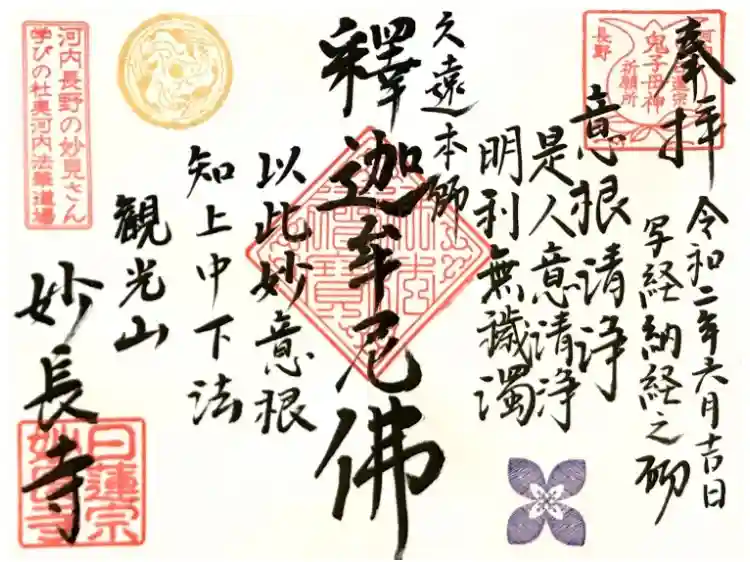 奉拝
令和二年六月吉日
写経納経之砌
意根清浄
是人意清浄
明利無穢濁
久遠本師
釋迦牟尼佛
以此妙意根
知上中下法
観光山
妙長寺
日蓮宗
鬼子母神
祈願所
長野
河内長野の妙見さん
学びの杜奥河内法華道場
日蓮宗